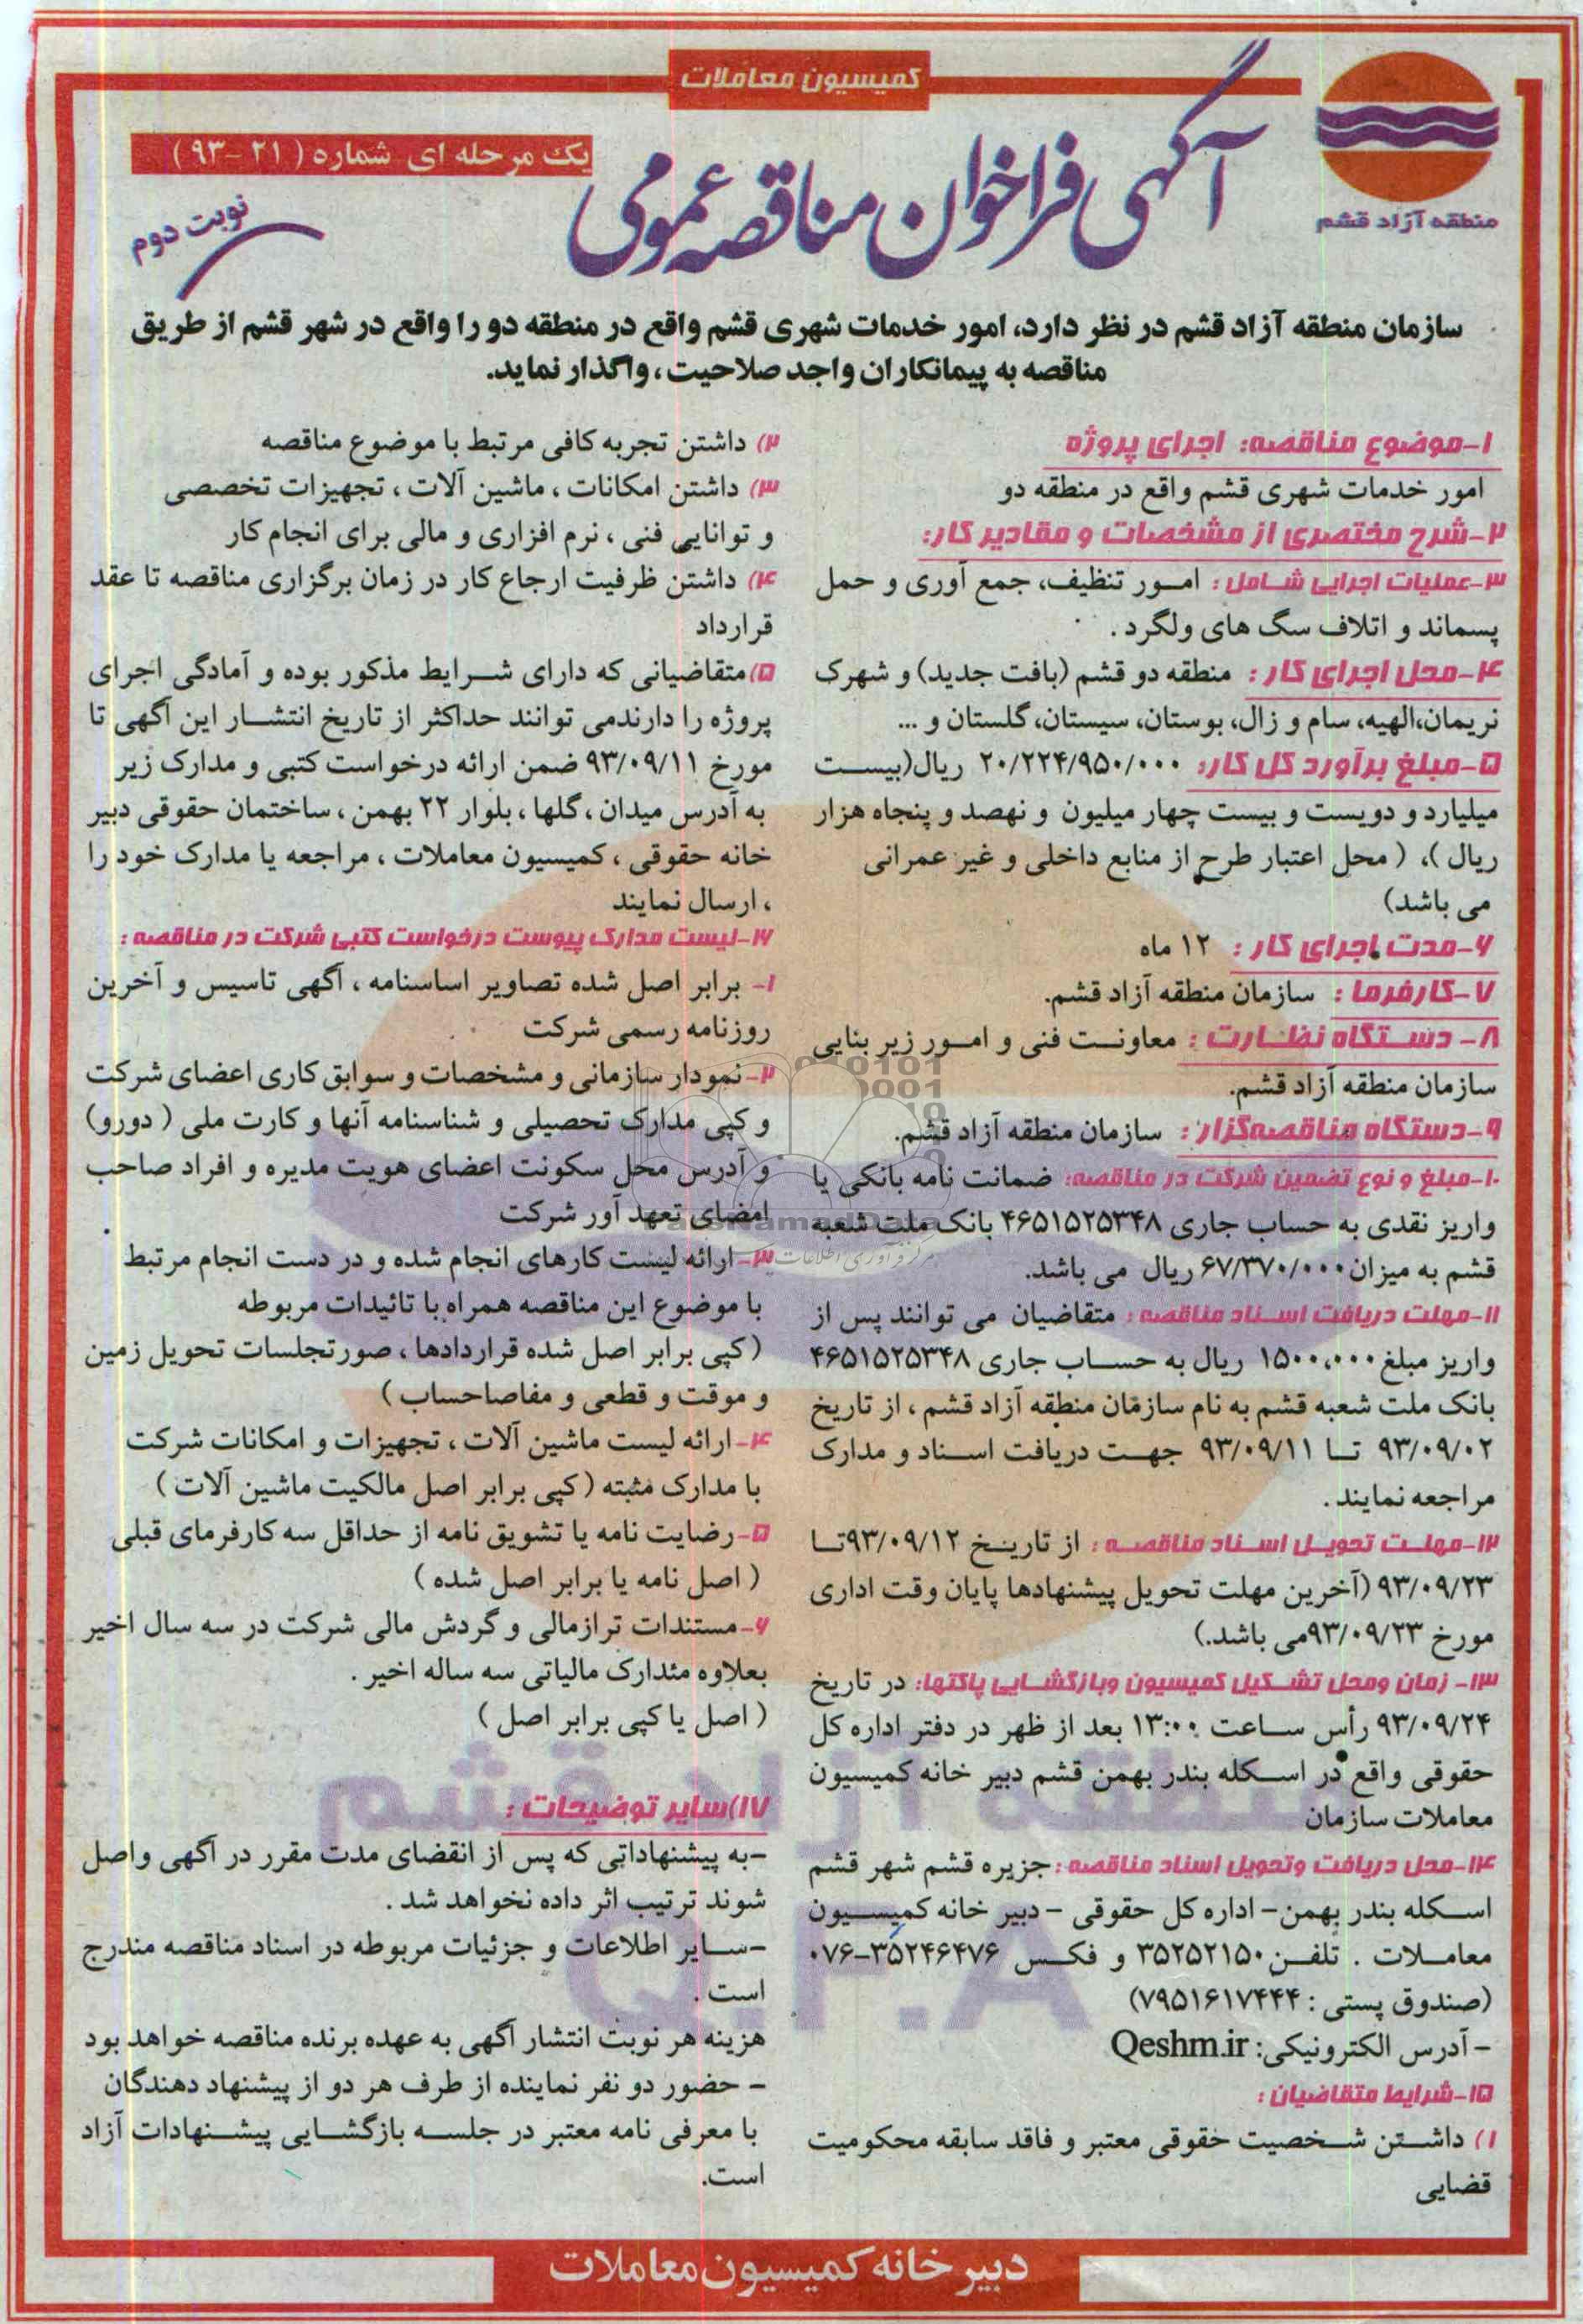 کمیسیون معاملات
آگهی فراخوان مناقصه عمومی
یک مرحله ای شماره (۲۱-۹۳)
نوبت دوم
منطقه آزاد قشم
سازمان منطقه آزاد قشم در نظر دارد، امور خدمات شهری قشم واقع در منطقه دو را واقع در شهر قشم از طریق
مناقصه به پیمانکاران واجد صلاحیت، واگذار نماید.
۱-موضوع مناقصه: اجرای پروژه
امور خدمات شهری قشم واقع در منطقه دو
۲-شرح مختصری از مشخصات و مقادیر کار:
۳-عملیات اجرایی شامل: امور تنظیف، جمع آوری و حمل
پسماند و اتلاف سگ های ولگرد.
۴-محل اجرای کار: منطقه دو قشم (بافت جدید) و شهرک
نریمان،الهیه، سام و زال، بوستان، سیستان، گلستان و ...
۵-مبلغ برآورد کل کار: ۲۰/۲۲۴/۹۵۰/۰۰۰ ریال(بیست
میلیارد و دویست و بیست چهار میلیون و نهصد و پنجاه هزار
ریال)، (محل اعتبار طرح از منابع داخلی و غیر عمرانی
می باشد)
۶-مدت اجرای کار: ۱۲ ماه
۷-کارفرما: سازمان منطقه آزاد قشم.
۸- دستگاه نظارت: معاونت فنی و امور زیر بنایی
سازمان منطقه آزاد قشم.
۹-دستگاه مناقصه‌گزار: سازمان منطقه آزاد قشم.
۱۰-مبلغ و نوع تضمین شرکت در مناقصه: ضمانت نامه بانکی یا
واریز نقدی به حساب جاری ۴۶۵۱۵۲۵۳۴۸ بانک ملت شعبه
قشم به میزان ۶۷/۳۷۰/۰۰۰ ریال می باشد.
۱۱-مهلت دریافت اسناد مناقصه: متقاضیان می توانند پس از
واریز مبلغ ۱۵۰۰،۰۰۰ ریال به حساب جاری ۴۶۵۱۵۲۵۳۴۸
بانک ملت شعبه قشم به نام سازمان منطقه آزاد قشم، از تاریخ
۹۳/۰۹/۰۲ تا ۹۳/۰۹/۱۱ جهت دریافت اسناد و مدارک
مراجعه نمایند.
۱۲-مهلت تحویل اسناد مناقصه: از تاریخ ۹۳/۰۹/۱۲تا
۹۳/۰۹/۲۳ (آخرین مهلت تحویل پیشنهادها پایان وقت اداری
مورخ ۹۳/۰۹/۲۳می باشد.)
۱۳- زمان ومحل تشکیل کمیسیون وبازگشایی پاکتها: در تاریخ
۹۳/۰۹/۲۴ رأس ساعت ۱۳:۰۰ بعد از ظهر در دفتر اداره کل
حقوقی واقع در اسکله بندر بهمن قشم دبیر خانه کمیسیون
معاملات سازمان
۱۴-محل دریافت وتحویل اسناد مناقصه: جزیره قشم شهر قشم
اسکله بندر بهمن- اداره کل حقوقی - دبیر خانه کمیسیون
معاملات . تلفن ۳۵۲۵۲۱۵۰ و فکس ۳۵۲۴۶۴۷۶-۰۷۶
(صندوق پستی: ۷۹۵۱۶۱۷۴۴۴)
- آدرس الکترونیکی: Qeshm.ir
۱۵-شرایط متقاضیان:
۱) داشتن شخصیت حقوقی معتبر و فاقد سابقه محکومیت
قضایی
۲) داشتن تجربه کافی مرتبط با موضوع مناقصه
۳) داشتن امکانات، ماشین آلات، تجهیزات تخصصی
و توانایی فنی، نرم افزاری و مالی برای انجام کار
۴) داشتن ظرفیت ارجاع کار در زمان برگزاری مناقصه تا عقد
قرارداد
۵)متقاضیانی که دارای شرایط مذکور بوده و آمادگی اجرای
پروژه را دارندمی توانند حداکثر از تاریخ انتشار این آگهی تا
مورخ ۹۳/۰۹/۱۱ ضمن ارائه درخواست کتبی و مدارک زیر
به آدرس میدان، گلها، بلوار ۲۲ بهمن، ساختمان حقوقی دبیر
خانه حقوقی، کمیسیون معاملات، مراجعه یا مدارک خود را
، ارسال نمایند
۱۶-لیست مدارک پیوست درخواست کتبی شرکت در مناقصه:
۱- برابر اصل شده تصاویر اساسنامه، آگهی تاسیس و آخرین
روزنامه رسمی شرکت
۲-نمودار سازمانی و مشخصات و سوابق کاری اعضای شرکت
و کپی مدارک تحصیلی و شناسنامه آنها و کارت ملی (دورو)
و آدرس محل سکونت اعضای هویت مدیره و افراد صاحب
امضای تعهد آور شرکت
۳-ارائه لیست کارهای انجام شده و در دست انجام مرتبط
با موضوع این مناقصه همراه با تائیدات مربوطه
(کپی برابر اصل شده قراردادها، صورتجلسات تحویل زمین
و موقت و قطعی و مفاصاحساب)
۴-ارائه لیست ماشین آلات، تجهیزات و امکانات شرکت
با مدارک مثبته (کپی برابر اصل مالکیت ماشین آلات)
۵-رضایت نامه یا تشویق نامه از حداقل سه کارفرمای قبلی
(اصل نامه یا برابر اصل شده)
۶-مستندات ترازمالی و گردش مالی شرکت در سه سال اخیر
بعلاوه مئدارک مالیاتی سه ساله اخیر.
(اصل یا کپی برابر اصل)
۱۷)سایر توضیحات:
-به پیشنهاداتی که پس از انقضای مدت مقرر در آگهی واصل
شوند ترتیب اثر داده نخواهد شد.
-سایر اطلاعات و جزئیات مربوطه در اسناد مناقصه مندرج
است.
هزینه هر نوبت انتشار آگهی به عهده برنده مناقصه خواهد بود
- حضور دو نفر نماینده از طرف هر دو از پیشنهاد دهندگان
با معرفی نامه معتبر در جلسه بازگشایی پیشنهادات آزاد
است.
منطقه آزاد قشم
Q.F.A
دبیر خانه کمیسیون معاملات